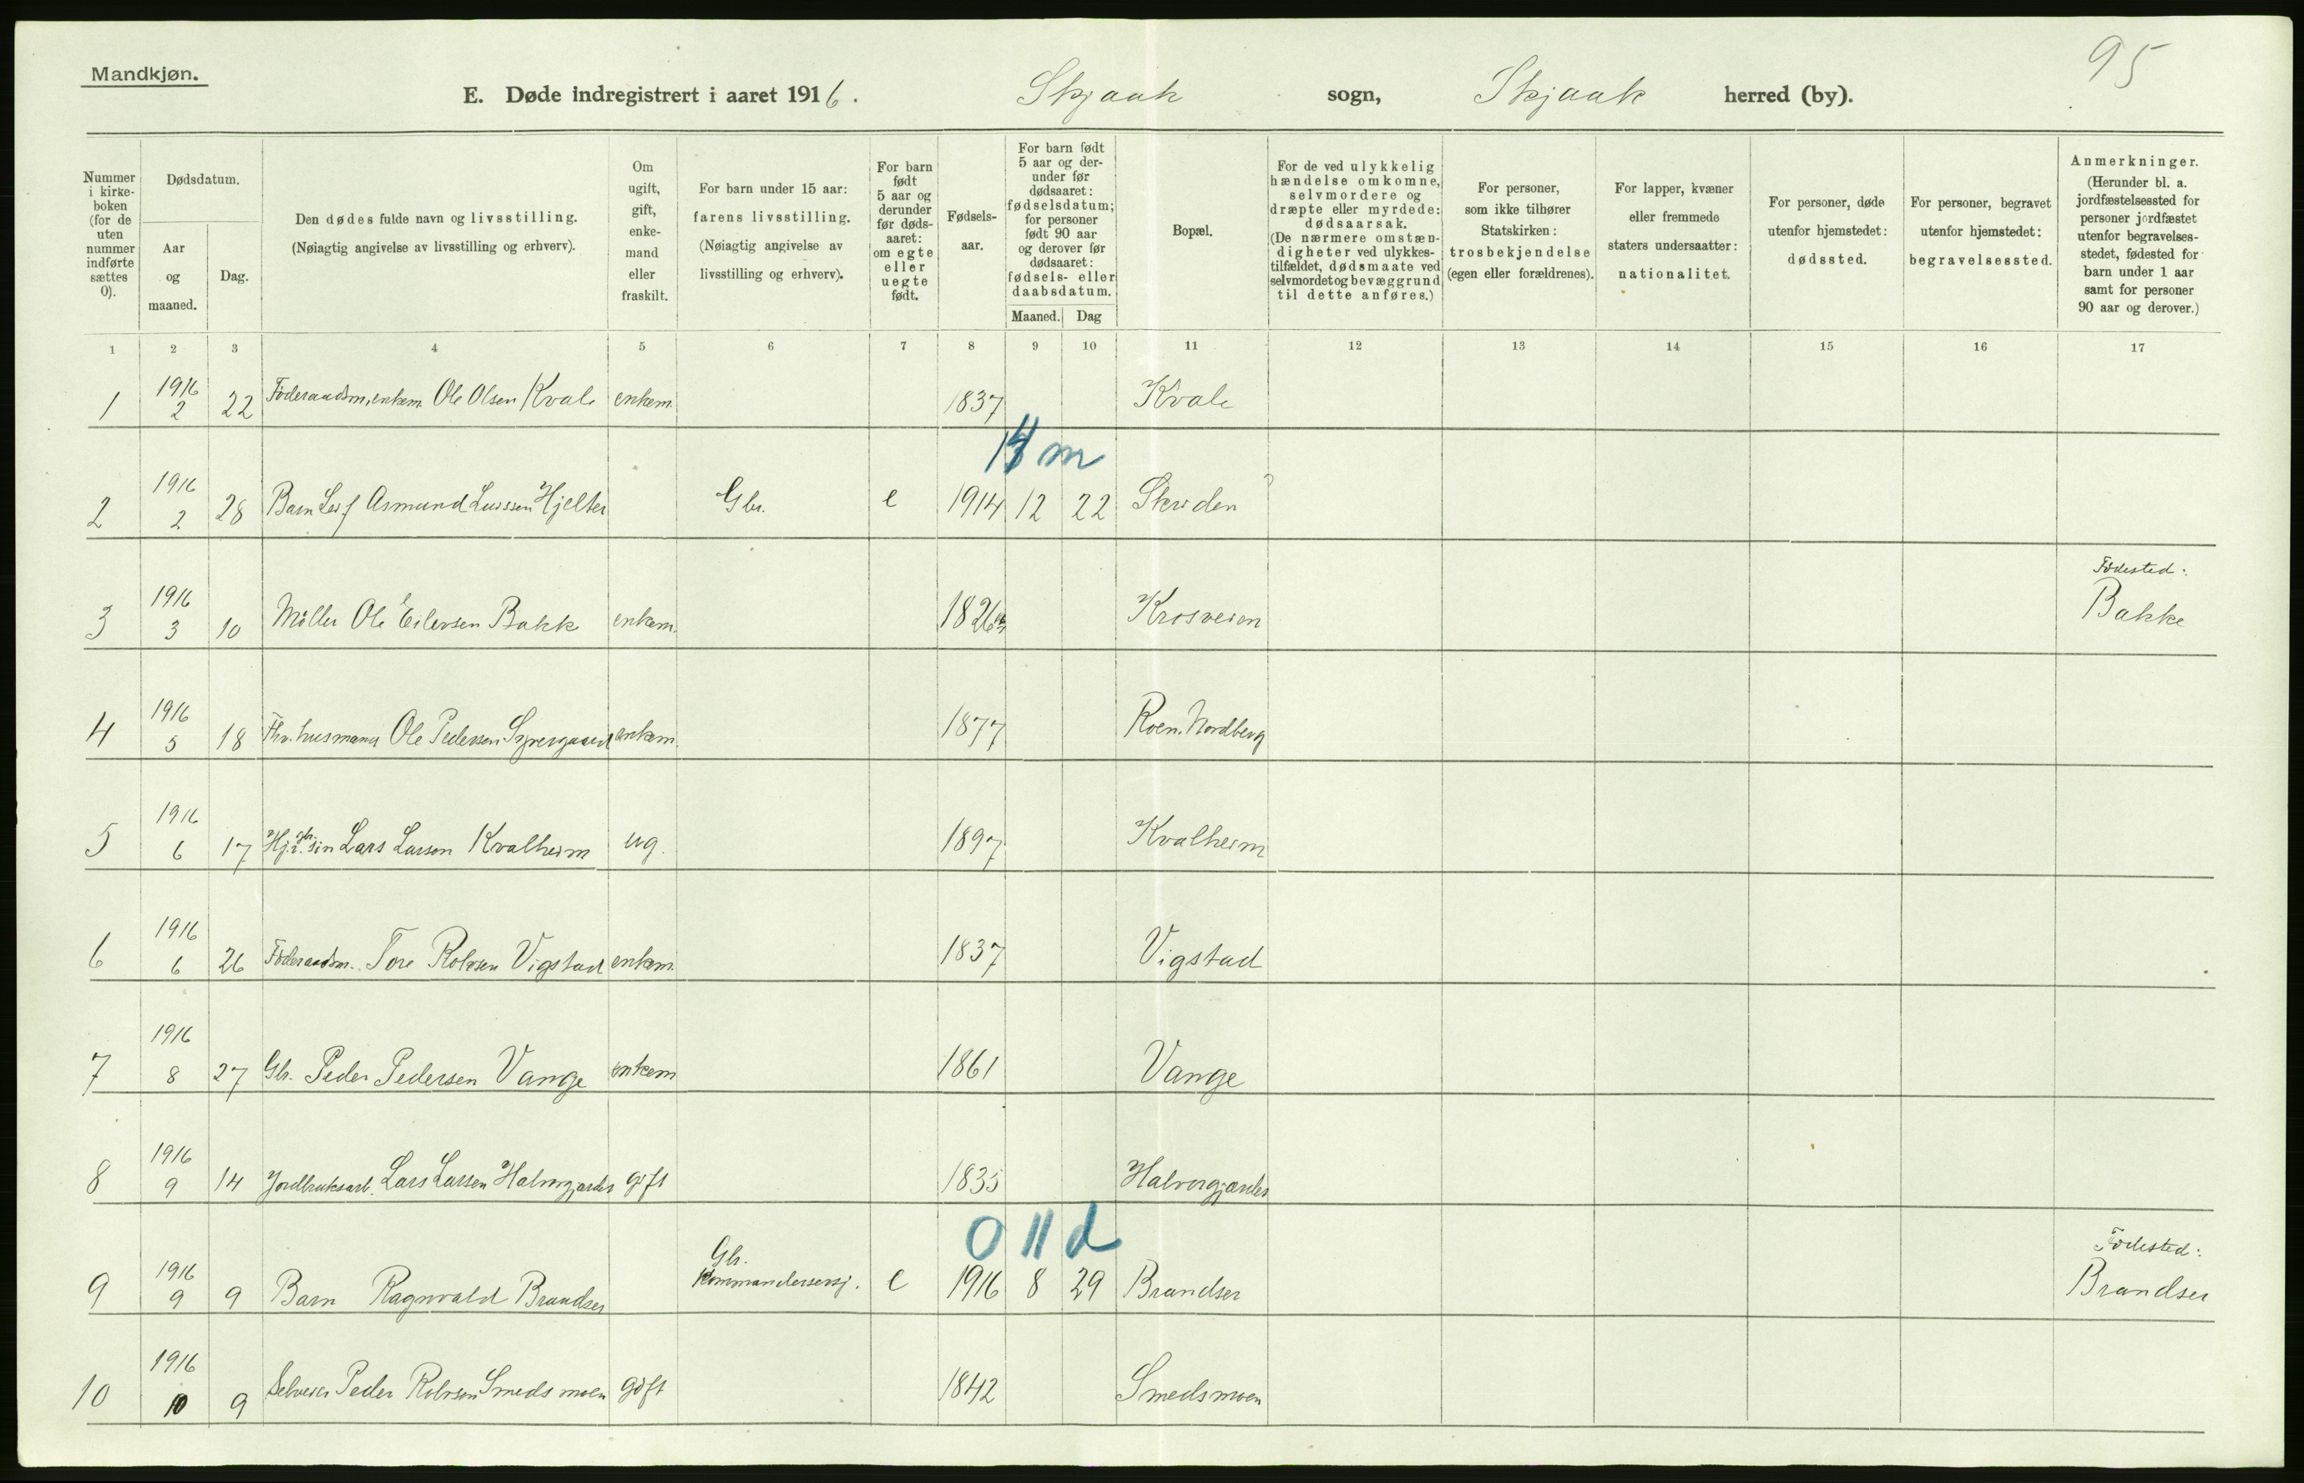 95
Mandkjøn.
E. Døde indregistrert i aaret 1916. Skjaak sogn, Skjaak herred (by).
Nummer i kirke- boken (for de uten nummer indførte sættes 0).
Dødsdatum.
Aar og maaned.
Dag.
Den dødes fulde navn og livsstilling.
(Nøiagtig angivelse av livsstilling og erhverv).
Om ugift, gift, enke- mand eller fraskilt.
For barn under 15 aar: farens livsstilling. (Nøiagtig angivelse av livsstilling og erhverv).
For barn født 5 aar og derunder før døds- aaret: om egte eller uegte født.
Fødsels- aar.
For barn født 5 aar og der- under før dødsaaret: fødselsdatum; for personer født 90 aar og derover før dødsaaret: fødsels- eller daabsdatum.
Maaned. Dag
Bopæl.
For de ved ulykkelig hændelse omkomne, selvmordere og dræpte eller myrdede: dødsaarsak. (De nærmere omstæn- digheter ved ulykkes- tilfældet, dødsmaate ved selvmordet og bevæggrund til dette anføres.)
For personer, som ikke tilhører Statskirken: trosbekjendelse (egen eller forældrenes).
For lapper, kvæner eller fremmede staters undersaatter: nationalitet.
For personer, døde utenfor hjemstedet: dødssted.
For personer, begravet utenfor hjemstedet: begravelsessted.
Anmerkninger. (Herunder bl. a. jordfæstelsessted for personer jordfæstet utenfor begravelses- stedet, fødested for barn under 1 aar samt for personer 90 aar og derover.)
1 2 3 4 5 6 7 8 9 10 11 12 13 14 15 16 17
1 1916 2 22 Föderaadsm, enkem. Ole Olsen Kvale enkem. 1837 Kvale
m
2 1916 2 28 Barn Leif Asmund Larssen Hjelter Gbr. e 1914 12 22 Skriden ?
Födested:
3 1916 3 10 Møller Ole Eilevsen Bakke enkem. 1826 Krosveien Bakke
4 1916 5 18 Fhv. husmand Ole Pedersen enkem. 1877 Roen. Nordberg
5 1916 6 17 sön Lars Larson Kvalheim ug. 1897 Kvalheim
6 1916 6 26 Föderaadsm. Tore Rolvsen Vigstad enkem. 1837 Vigstad
7 1916 8 27 Gbr. Peder Pedersen Vange enkem 1861 Vange
8 1916 9 14 Jordbruksarb. Lars Larsen Halvorgjardet gift 1835 Halvorgjardet
0 11 d
Födested:
9 1916 9 9 Barn Ragnvald Brandser Gbr. Kommandersersj. e 1916 8 29 Brandser Brandser
10 1916 10 9 Selveier Peder Rolvson Smedsmoen gift 1842 Smedsmoen